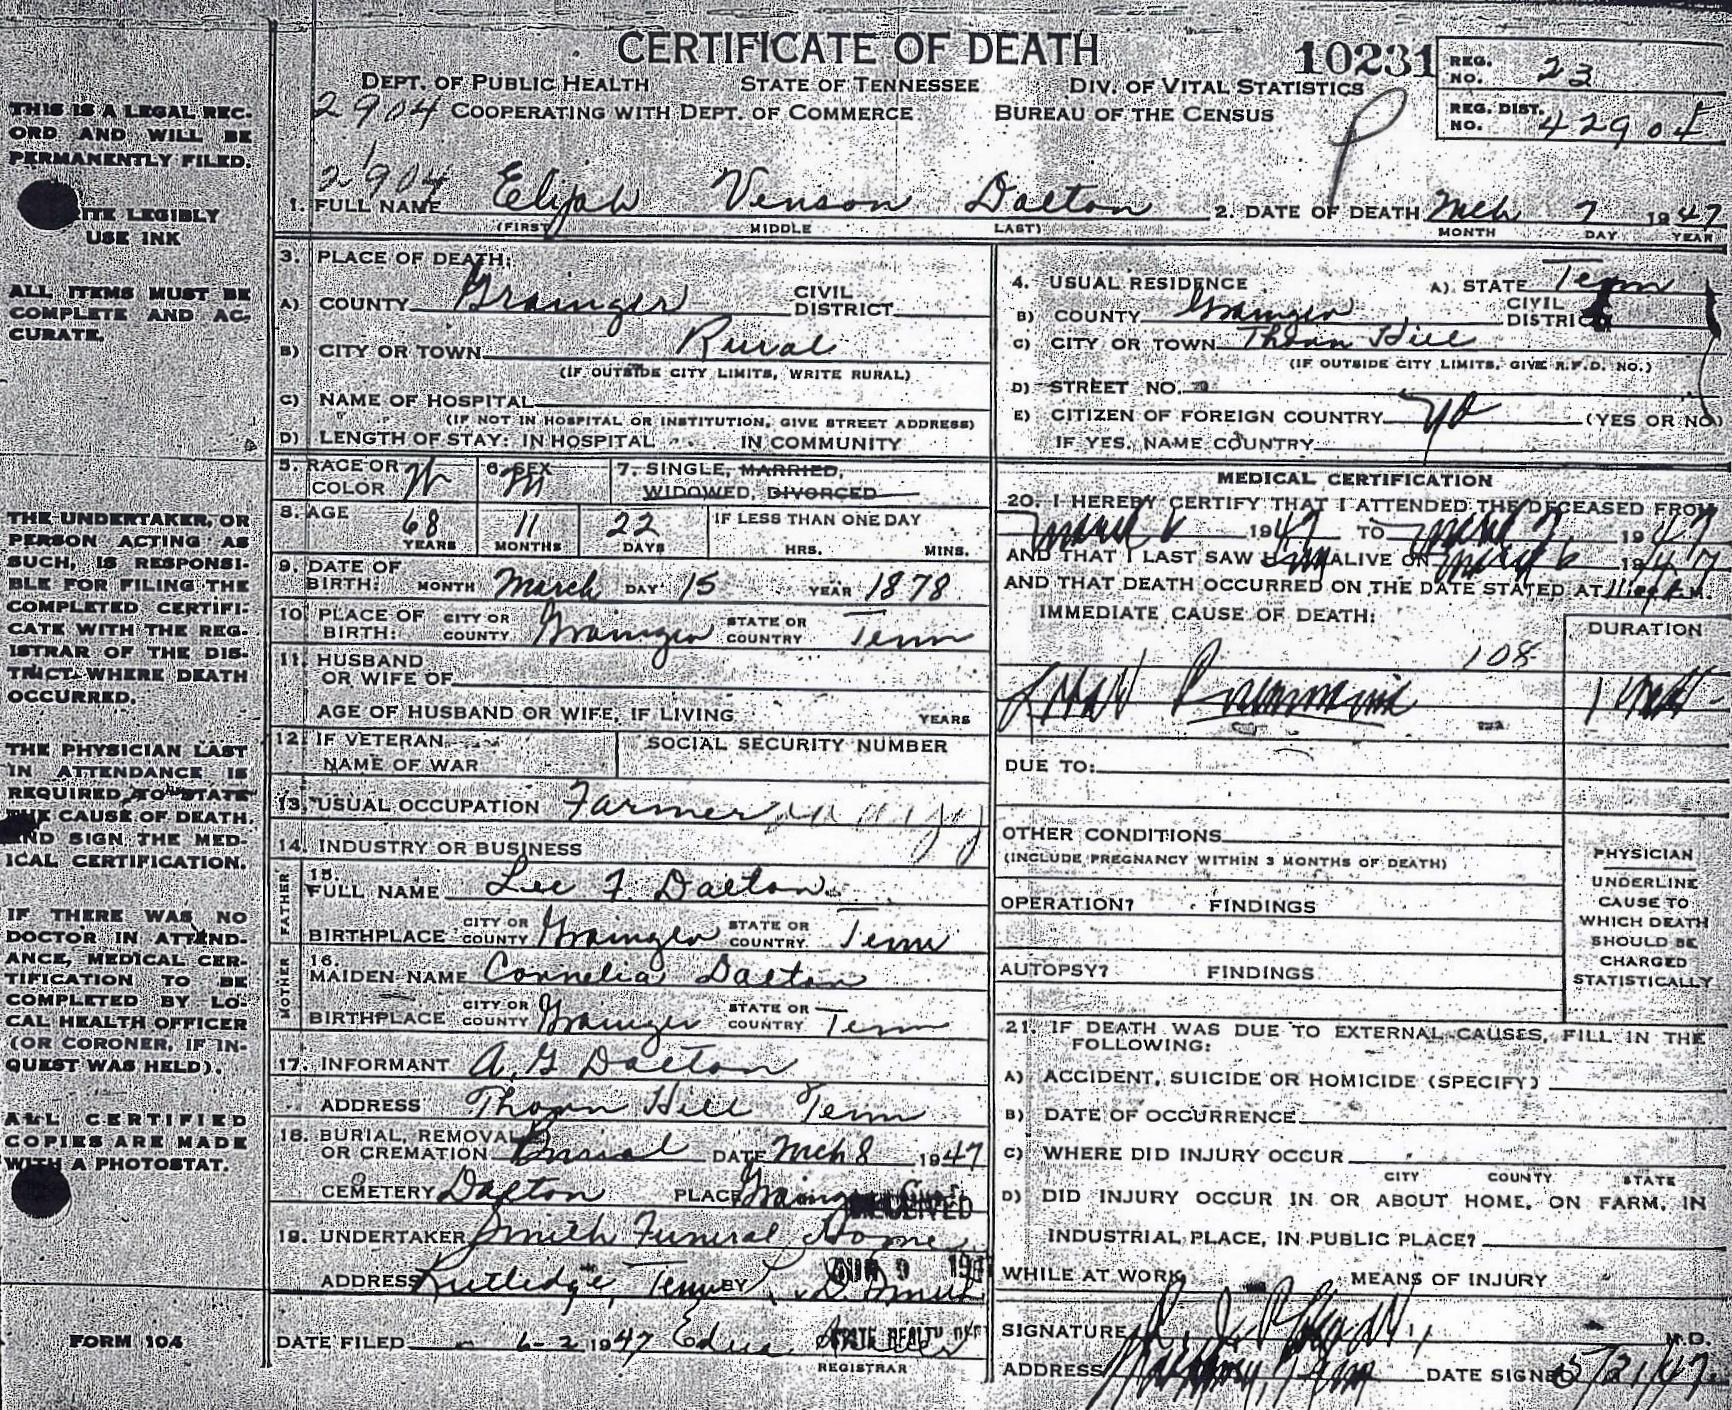 CERTIFICATE OF DEATH 10231
REG. NO. 23
DEPT. OF PUBLIC HEALTH STATE OF TENNESSEE DIV. OF VITAL STATISTICS
2904 COOPERATING WITH DEPT. OF COMMERCE BUREAU OF THE CENSUS
REG. DIST. NO. 42904
THIS IS A LEGAL RECORD AND WILL BE PERMANENTLY FILED.
2904
1. FULL NAME Elijah Venson Dalton 2. DATE OF DEATH Mch 7 1947
(FIRST) MIDDLE LAST) MONTH DAY YEAR
ITE LEGIBLY
USE INK
ALL ITEMS MUST BE COMPLETE AND ACCURATE.
THE UNDERTAKER, OR PERSON ACTING AS SUCH, IS RESPONSIBLE FOR FILING THE COMPLETED CERTIFICATE WITH THE REGISTRAR OF THE DISTRICT WHERE DEATH OCCURRED.
THE PHYSICIAN LAST IN ATTENDANCE IS REQUIRED TO STATE THE CAUSE OF DEATH AND SIGN THE MEDICAL CERTIFICATION.
IF THERE WAS NO DOCTOR IN ATTENDANCE, MEDICAL CERTIFICATION TO BE COMPLETED BY LOCAL HEALTH OFFICER (OR CORONER, IF INQUEST WAS HELD).
ALL CERTIFIED COPIES ARE MADE WITH A PHOTOSTAT.
FORM 104
3. PLACE OF DEATH:
A) COUNTY Grainger CIVIL DISTRICT
B) CITY OR TOWN Rural
(IF OUTSIDE CITY LIMITS, WRITE RURAL)
C) NAME OF HOSPITAL
(IF NOT IN HOSPITAL OR INSTITUTION, GIVE STREET ADDRESS)
D) LENGTH OF STAY: IN HOSPITAL IN COMMUNITY
4. USUAL RESIDENCE A) STATE Tenn
B) COUNTY Grainger CIVIL DISTRICT
C) CITY OR TOWN Thorn Hill
(IF OUTSIDE CITY LIMITS, GIVE R.F.D. NO.)
D) STREET NO.
E) CITIZEN OF FOREIGN COUNTRY no (YES OR NO)
IF YES, NAME COUNTRY
5. RACE OR COLOR W 6. SEX M 7. SINGLE, MARRIED,
WIDOWED, DIVORCED
8. AGE 68 YEARS 11 MONTHS 22 DAYS IF LESS THAN ONE DAY HRS. MINS.
9. DATE OF BIRTH: MONTH March DAY 15 YEAR 1878
10. PLACE OF BIRTH: CITY OR COUNTY Grainger STATE OR COUNTRY Tenn
11. HUSBAND OR WIFE OF
AGE OF HUSBAND OR WIFE, IF LIVING YEARS
12. IF VETERAN NAME OF WAR SOCIAL SECURITY NUMBER
13. USUAL OCCUPATION Farmer
14. INDUSTRY OR BUSINESS
FATHER
15. FULL NAME Lee F Dalton
BIRTHPLACE CITY OR COUNTY Grainger STATE OR COUNTRY Tenn
MOTHER
16. MAIDEN NAME Cornelia Dalton
BIRTHPLACE CITY OR COUNTY Grainger STATE OR COUNTRY Tenn
17. INFORMANT A. G Dalton
ADDRESS Thorn Hill Tenn
18. BURIAL, REMOVAL OR CREMATION Burial DATE Mch 8 1947
CEMETERY Dalton PLACE Grainger
RECEIVED
19. UNDERTAKER Smith Funeral Home
ADDRESS Rutledge, Tenn BY
DATE FILED 6-2 1947
REGISTRAR
MEDICAL CERTIFICATION
20. I HEREBY CERTIFY THAT I ATTENDED THE DECEASED FROM
March 6 1947 TO March 7 1947
AND THAT I LAST SAW him ALIVE ON March 6 1947
AND THAT DEATH OCCURRED ON THE DATE STATED AT M.
IMMEDIATE CAUSE OF DEATH: DURATION
108
Pneumonia
DUE TO:
OTHER CONDITIONS
(INCLUDE PREGNANCY WITHIN 3 MONTHS OF DEATH)
OPERATION? FINDINGS
AUTOPSY? FINDINGS
PHYSICIAN
UNDERLINE CAUSE TO WHICH DEATH SHOULD BE CHARGED STATISTICALLY
21. IF DEATH WAS DUE TO EXTERNAL CAUSES, FILL IN THE FOLLOWING:
A) ACCIDENT, SUICIDE OR HOMICIDE (SPECIFY)
B) DATE OF OCCURRENCE
C) WHERE DID INJURY OCCUR
CITY COUNTY STATE
D) DID INJURY OCCUR IN OR ABOUT HOME, ON FARM, IN
INDUSTRIAL PLACE, IN PUBLIC PLACE?
WHILE AT WORK MEANS OF INJURY
SIGNATURE M.D.
ADDRESS DATE SIGNED 5/21/47